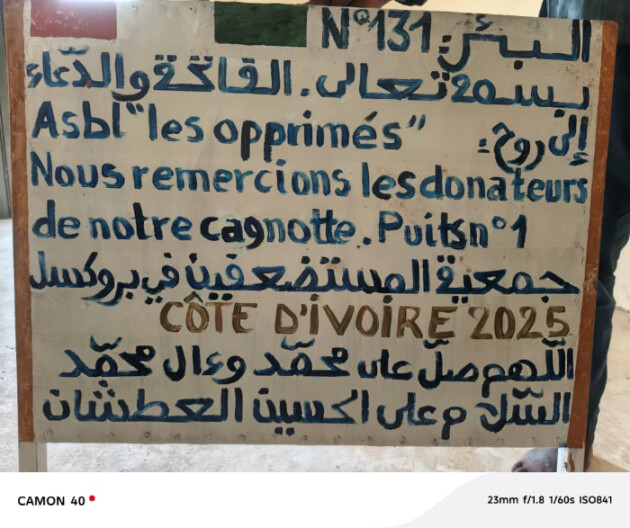 البئر: N°131
بسمه تعالى. الفاتحة والدّعاء
إلى روح: Asbl "les opprimés"
Nous remercions les donateurs
de notre cagnotte. Puits n°1
جمعية المستضعفين في بروكسل
CÔTE D'IVOIRE 2025
اللّهم صلّ على محمّد وءال محمّد
السّلام على الحسين العطشان
CAMON 40
23mm f/1.8 1/60s ISO841